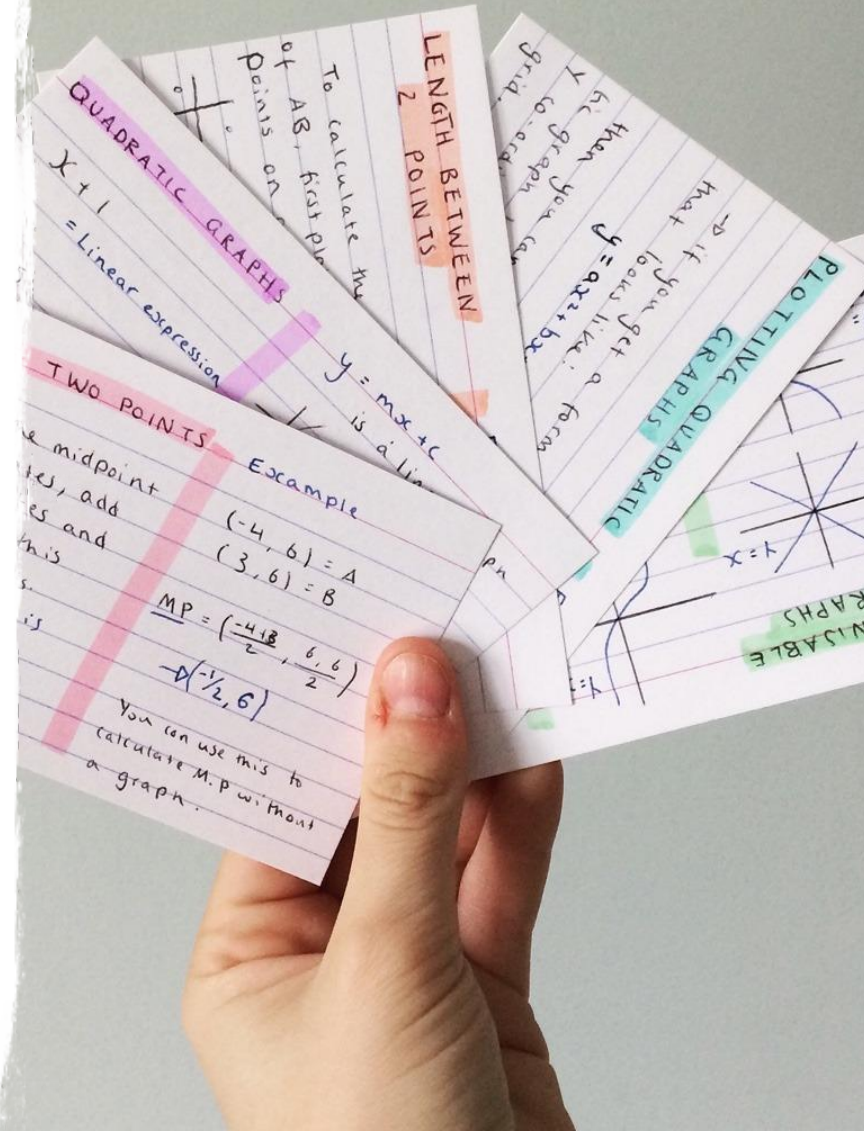 TWO POINTS
e midpoint
tes, add
es and
this
s.
is
Example
(-4, 6) = A
(3, 6) = B
MP = (-4+3/2, 6,6/2)
→(-1/2, 6)
You can use this to
calculate M.P without
a graph.
QUADRATIC GRAPHS
x + 1
= Linear expression
y = mx + c
is a lin
LENGTH BETWEEN
2 POINTS
To calculate the
of AB, first pla
points on
PLOTTING QUADRATIC
GRAPHS
→ if you get a form
that looks like:
y = ax² + bx
then you can
grid.
y = x
y =
NISABLE
RAPHS